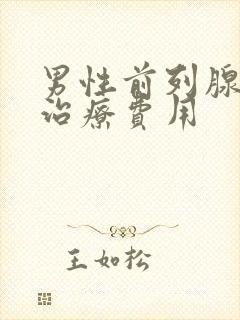 男性前列腺
治療費用
王如松